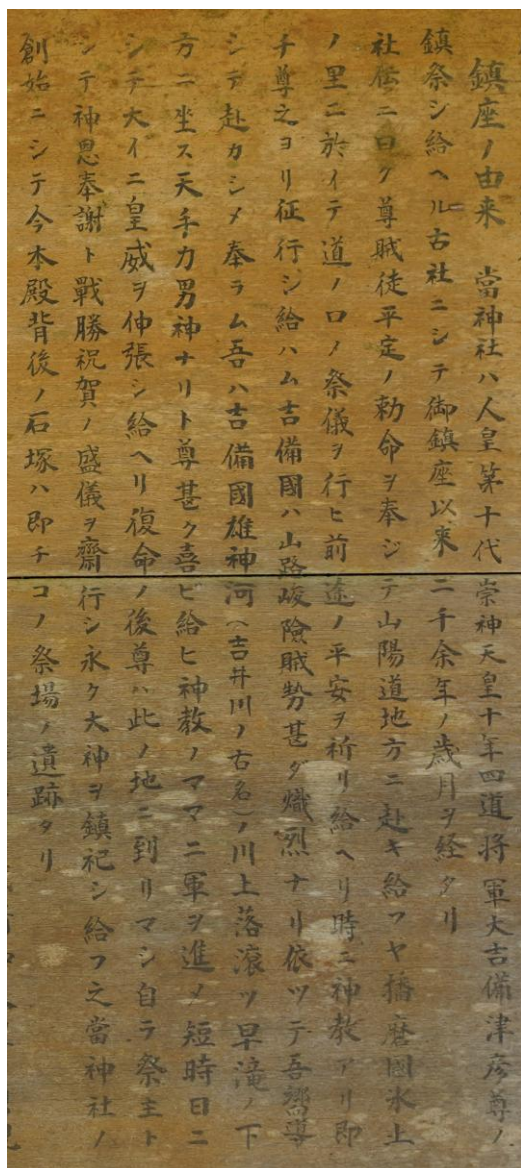 鎮座ノ由来　當神社ハ人皇第十代崇神天皇十年四道将軍大吉備津彦尊ノ
鎮祭シ給ヘル古社ニシテ御鎮座以来二千余年ノ歳月ヲ経タリ
社伝ニ曰ク尊賊徒平定ノ勅命ヲ奉ジテ山陽道地方ニ赴キ給フヤ播磨國氷上
ノ里ニ於イテ道ノ口ノ祭儀ヲ行ヒ前途ノ平安ヲ祈リ給ヘリ時ニ神教アリ即
チ尊之ヨリ征行シ給ハム吉備國ハ山路峻險賊勢甚ダ熾烈ナリ依ツテ吾嚮導
シテ赴カシメ奉ラム吾ハ吉備國雄神河(吉井川ノ古名)ノ川上落滾ツ早滝ノ下
方ニ坐ス天手力男神ナリト尊甚ク喜ビ給ヒ神教ノママニ軍ヲ進メ短時日ニ
シテ大イニ皇威ヲ伸張シ給ヘリ復命ノ後尊ハ此ノ地ニ到リマシ自ラ祭主ト
シテ神恩奉謝ト戰勝祝賀ノ盛儀ヲ齋行シ永ク大神ヲ鎮祀シ給フ之當神社ノ
創始ニシテ今本殿背後ノ石塚ハ即チコノ祭場ノ遺跡タリ